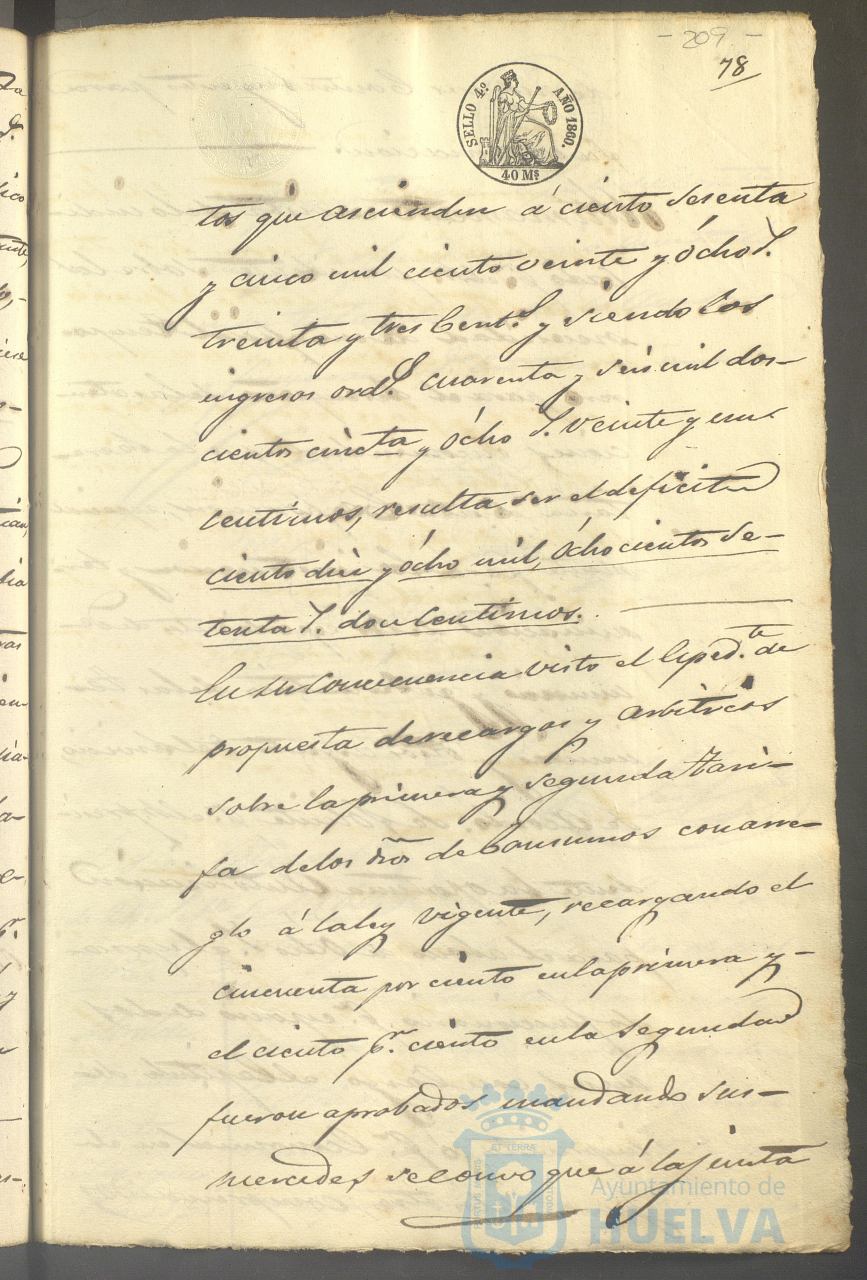 - 209 -
78
SELLO 4º AÑO 1860.
40 Mˢ
tos que ascienden á ciento sesenta
y cinco mil ciento veinte y ócho r.ˢ
treinta y tres Cent.ˢ y siendo los
ingresos ord.ˢ cuarenta y seis mil dos-
cientos cincta y ócho r.ˢ veinte y un
centimos, resulta ser el deficit de
ciento diez y ócho mil, óchocientos se-
tenta r.ˢ doce Centimos.
En su Consecuencia visto el Esped.te de
propuesta de recargos y arbitrios
sobre la primera y segunda tari-
fa de los dros de Consumos con arre-
glo á la ley vigente, recargando el
cincuenta por ciento en la primera y-
el ciento p.r ciento en la segunda
fueron aprobados mandando sus-
mercedes se convoque á la junta
ET TERRÆ
Ayuntamiento de
HUELVA